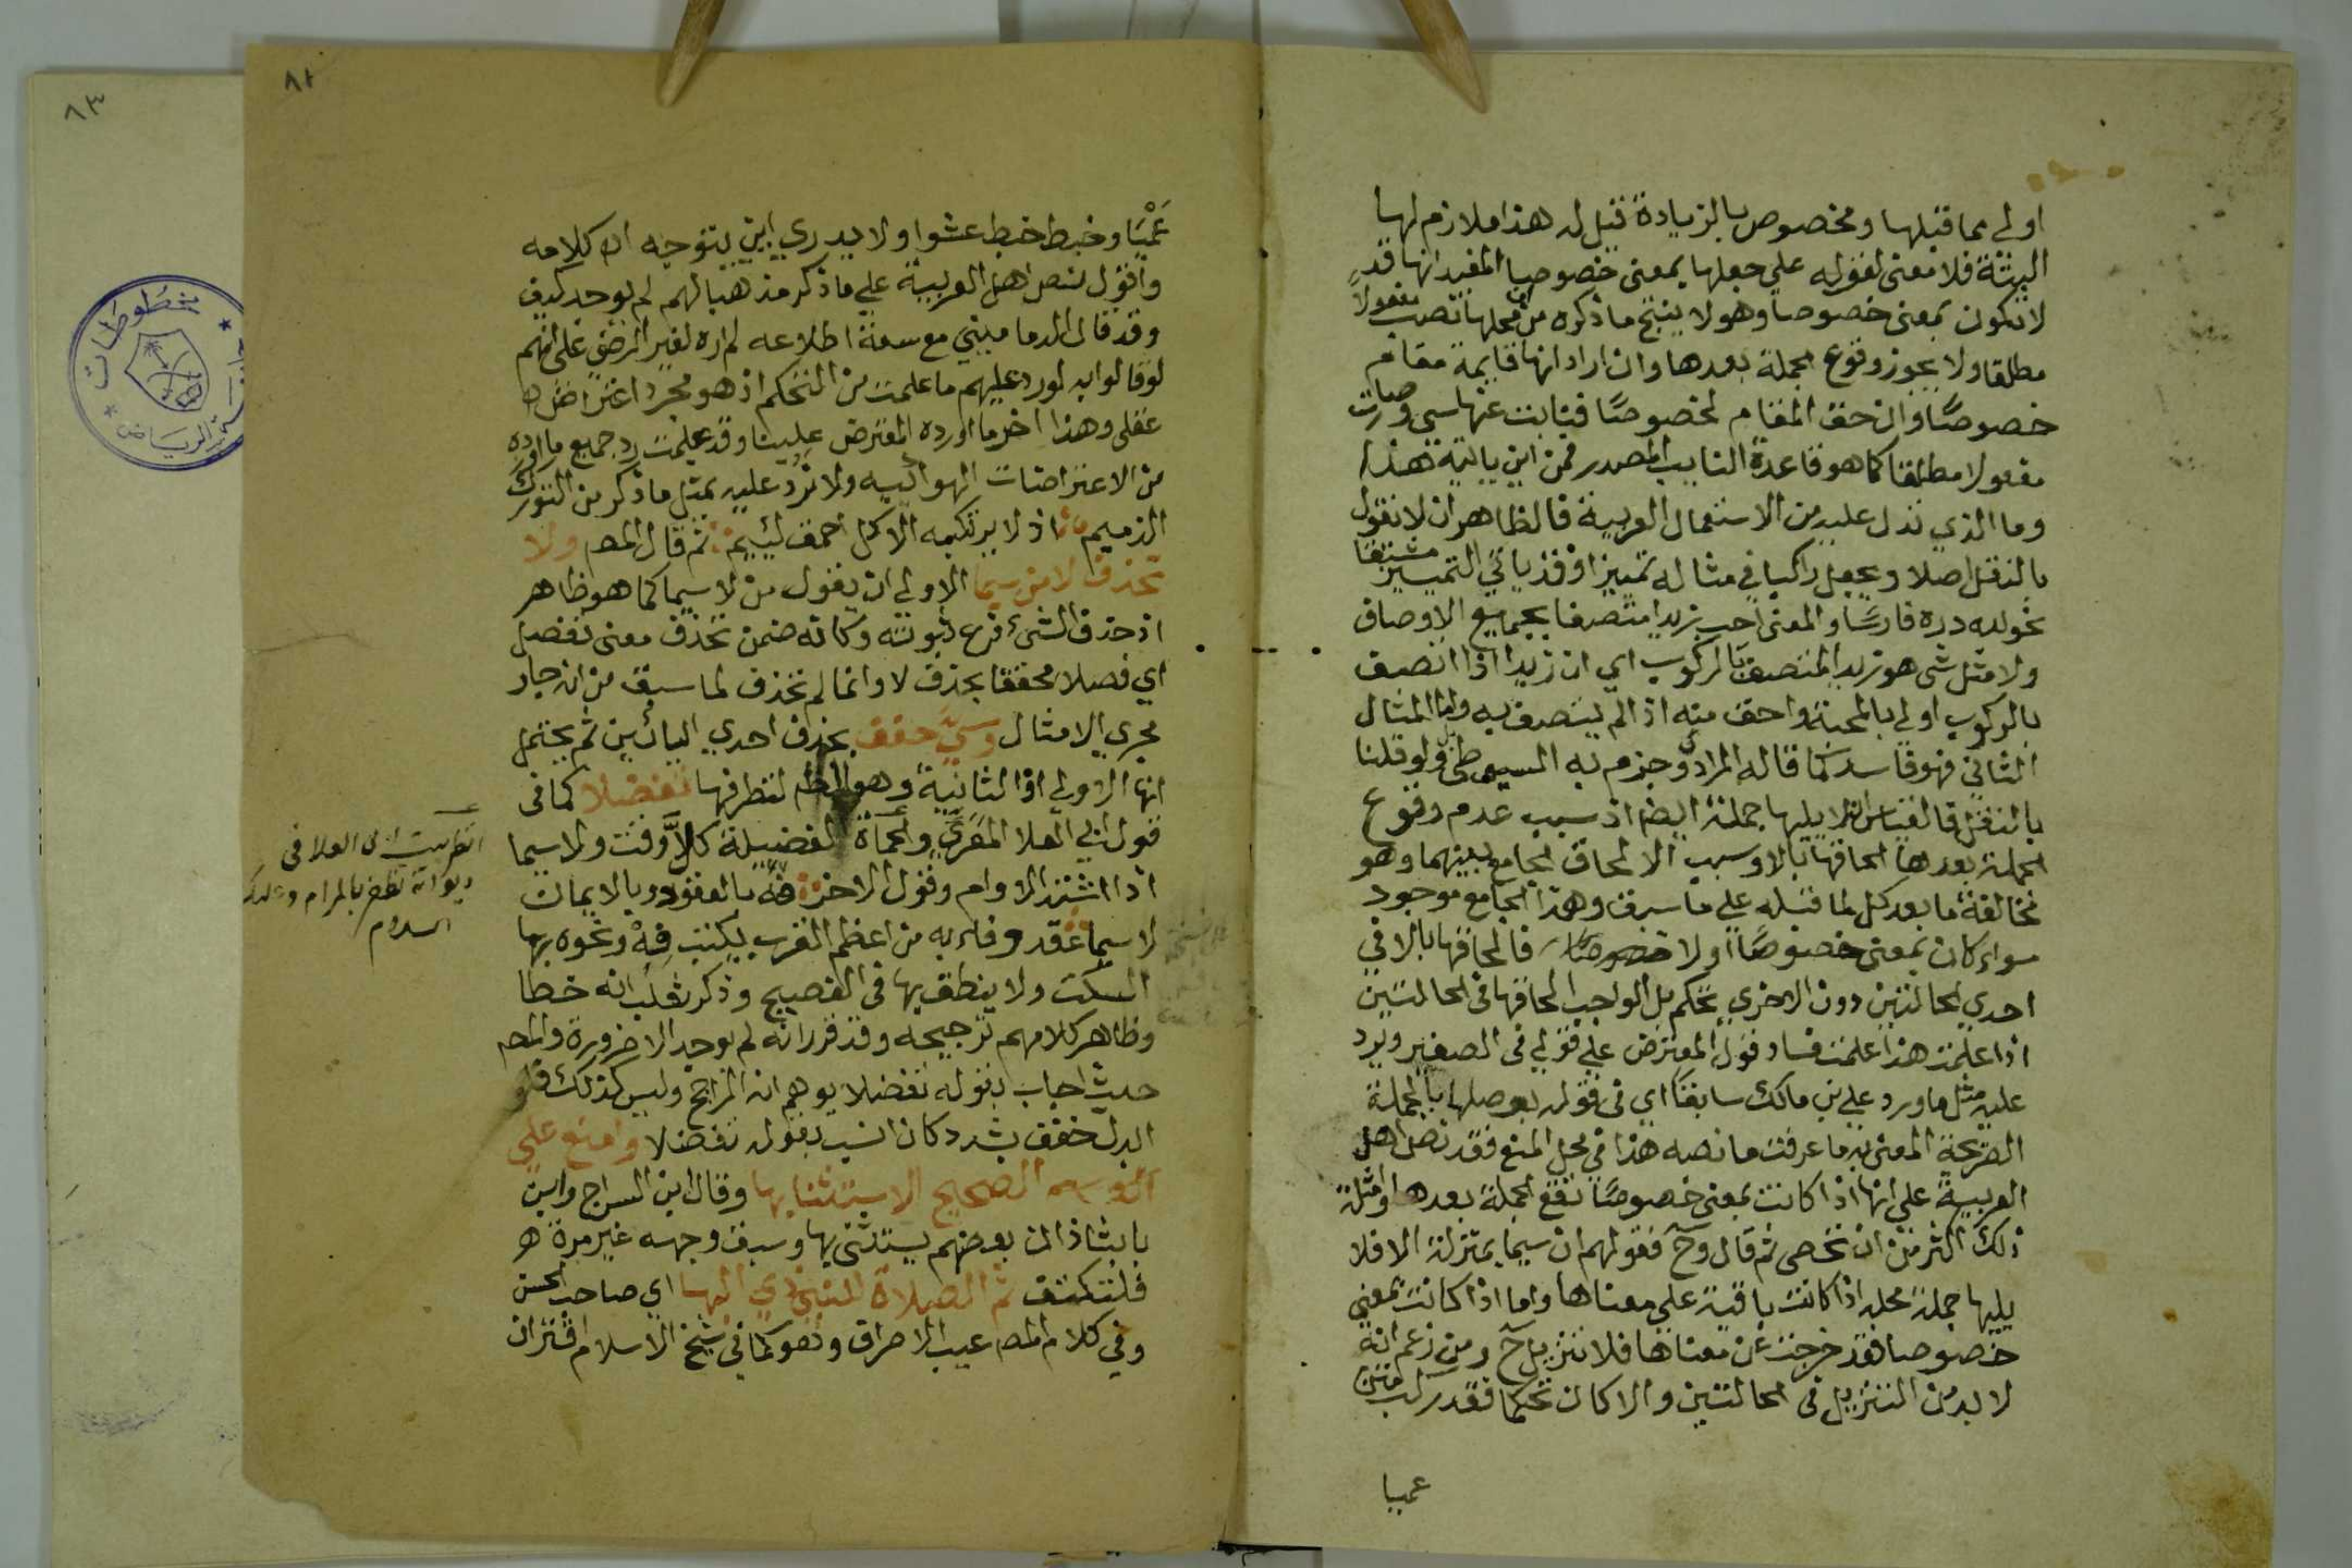 اولى مما قبلها ومخصوص بالزيادة قيل له هذا ملازم لها
البتة فلا معنى لقوله على جعلها بمعنى خصوصا المفيد انها قد
لا تكون بمعنى خصوصا وهو لا ينتج ما ذكره من محلها نصب مفعولا
مطلقا ولا يجوز وقوع الجملة بعدها وان اراد انها قايمة مقام
خصوصًا وان حق المقام لخصوصًا فنابت عنها سي وصارت
مفعولا مطلقا كما هو قاعدة النايب المصدر فمن اين ياتيه هذا
وما الذي تدل عليه من الاستعمال العربية فالظاهر ان لا نقول
بالنقل اصلا ويجعل راكبا في مثاله تمييزا وقد ياتي التمييز مشتقا
نحو لله دره فارسًا والمعنى احب زيدا متصفا بجميع الاوصاف
ولا مثل شي هو زيد المتصف بالركوب اي ان زيدا اذا اتصف
بالركوب اولى بالمحبة واحق منه اذا لم يتصف به واما المثال
الثاني فهو فاسد كما قاله المرادي وجزم به السيوطي ولو قلنا
بالنقل فالقياس ان لا يليها جملة ايضا اذ سبب عدم وقوع
الجملة بعدها الحاقها بالا وسبب الالحاق الجامع بينهما وهو
مخالفة ما بعد كل لما قبله على ما سبق وهذا الجامع موجود
سواء كان بمعنى خصوصًا اولا فالحاقها بالا في
احدي الحالتين دون الاخري تحكم بل الواجب الحاقها في الحالتين
اذا علمت هذا علمت فساد قول المعترض على قولي في الصغير ويرد
عليه مثل ما ورد على بن مالك سابقا اي في قوله بوصلها بالجملة
الصريحة المعنى به ما عرفت ما نصه هذا في محل المنع فقد نص اهل
العربية على انها اذا كانت بمعنى خصوصًا تقع الجملة بعدها وامثلة
ذلك اكثر من ان تحصى ثم قال وح فقولهم ان سيما بمنزلة الا فلا
يليها جملة محله اذا كانت باقية على معناها واما اذا كانت بمعنى
خصوصا فقد خرجت عن معناها فلا تنزيل ح ومن زعم انه
لا بد من التنزيل في الحالتين والا كان تحكما فقد ركب متن
عميا
٨٢
عَمْيَا وخبط خبط عشوا ولا يدري اين يتوجه اه كلامه
واقول نص اهل العربية على ما ذكر مذهبا لهم لم يوجد كيف
وقد قال الدماميني مع سعة اطلاعه لم اره لغير الرضي على انهم
لو قالوا به لورد عليهم ما علمت من التحكم اذ هو مجرد اعتراض
عقلى وهذا اخر ما اورده المعترض علينا وقد علمت رد جميع ما اورده
من الاعتراضات الهوائيه ولا نرد عليه بمثل ما ذكر من التورك
الذميم اذ لا يرتكبه الا كل احمق لئيم ثم قال المص ولا
تحذف لا من سيما الاولى ان يقول من لا سيما كما هو ظاهر
اذ حذف الشيء فرع ثبوته وكانه ضمن تحذف معنى تفصل
اي فصلا محققا بحذف لا وانما لم تحذف لما سبق من انه جار
مجري الامثال وسيَّ خفف بحذف احدي اليائين ثم يحتمل
انها الاولى او الثانية وهو الظ لتطرفها تفضلا كما في
قول ابي العلا المعري والحماة لفضيلة كل وقت ولا سيما
اذا اشتد الاوام وقول الاخر فه بالعقود وبالايمان
لا سيما عقد وفاء به من اعظم القرب يكتب فِهْ ونحوه بها
السكت ولا ينطق بها في الفصيح وذكر ثعلب انه خطا
وظاهر كلامهم ترجيحه وقد قرر انه لم يوجد الا ضرورة والمص
حيث اجاب بقوله تفضلا يوهم انه الراجح وليس كذلك فلو
ابدل خفف بشدد كان انسب بقوله تفضلا وامنع على
الصحيح الاستثنا بها وقال ابن السراج وابن
بابشاذ ان بعضهم يستثنى بها وسبق وجهه غير مرة
فلتكتف ثم الصلاة للنبي ذي البها اي صاحب الحسن
وفي كلام المص عيب الاصراف وهو كما في شيخ الاسلام اقتران
انظر بيت ابى العلا في
ديوانه تظفر بالمرام
السلام
٨٣
مخطوطات
الرياض